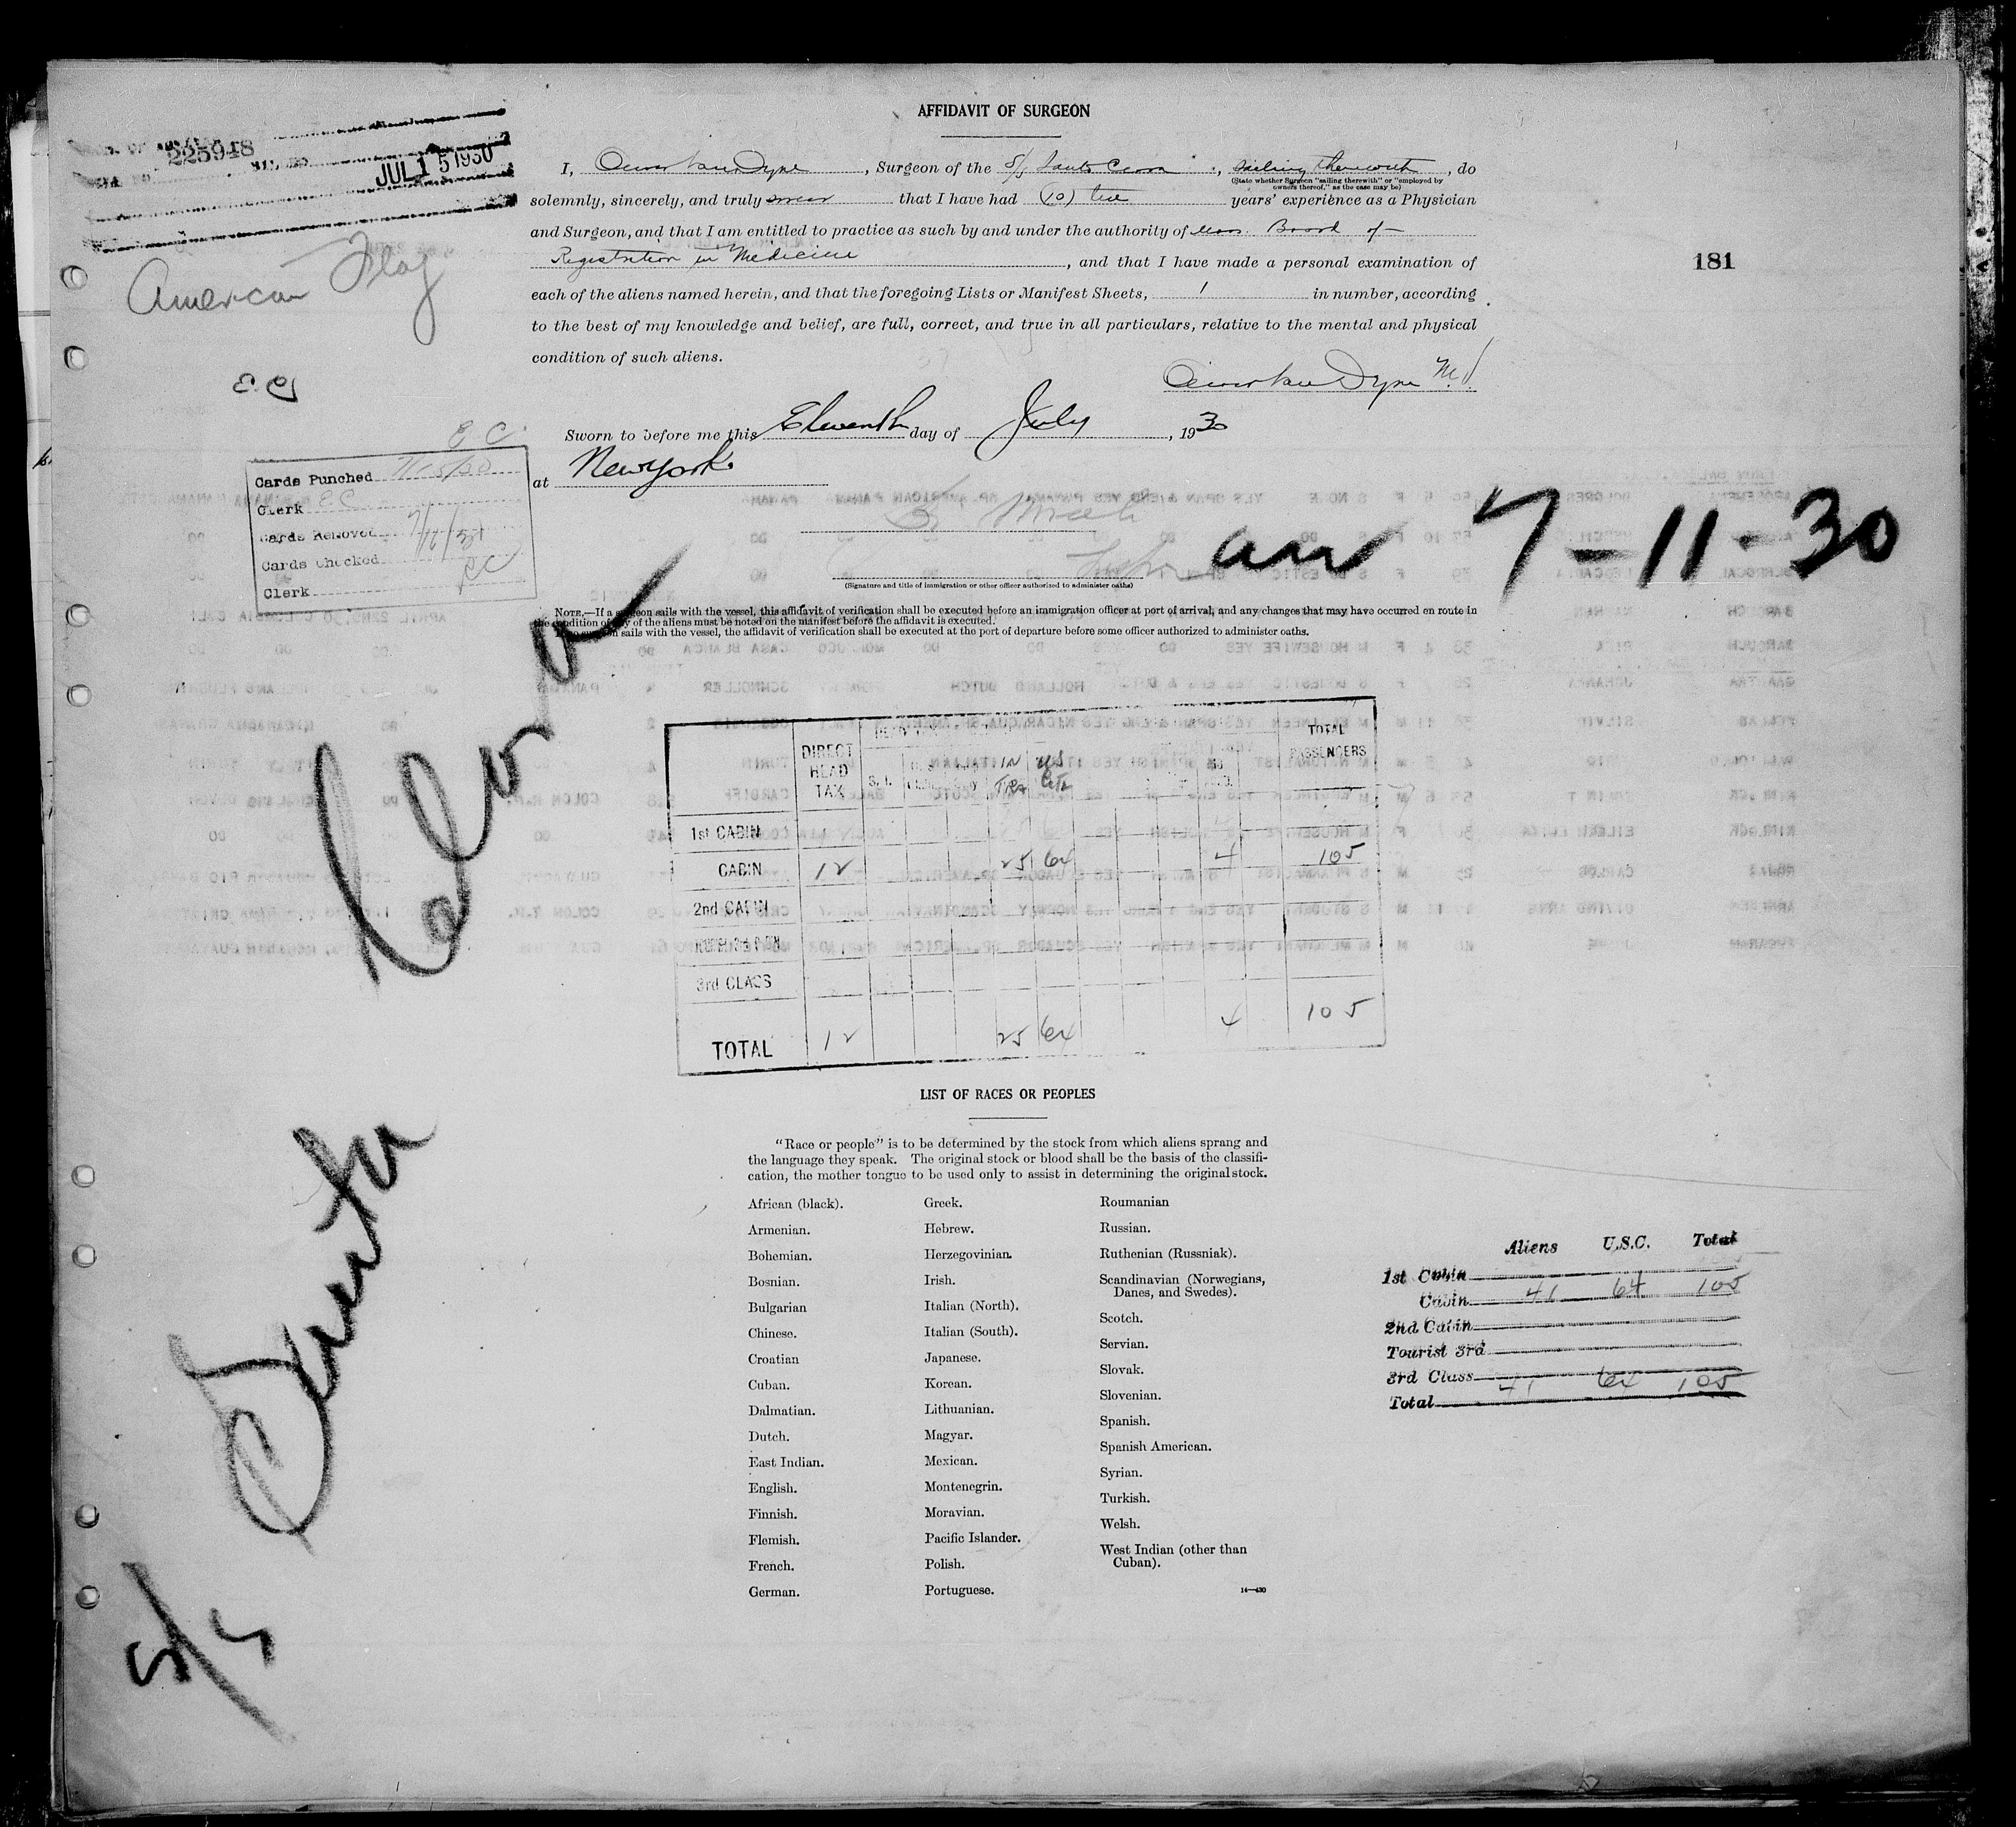 AFFIDAVIT OF SURGEON
225948
JUL 15 1930
I, Van Dyne, Surgeon of the S/S Santa Clara, sailing therewith, do
(State whether Surgeon "sailing therewith" or "employed by
owners thereof," as the case may be)
solemnly, sincerely, and truly swear that I have had (10) ten years' experience as a Physician
and Surgeon, and that I am entitled to practice as such by and under the authority of Mass. Board of
Registration in Medicine, and that I have made a personal examination of
each of the aliens named herein, and that the foregoing Lists or Manifest Sheets, 1 in number, according
to the best of my knowledge and belief, are full, correct, and true in all particulars, relative to the mental and physical
condition of such aliens.
Van Dyne M.D.
181
American Flag
E.C.
Sworn to before me this Eleventh day of July, 1930
at New York
E C
Cards Punched 7/15/30
Clerk E C
Cards Removed
Cards Checked
Clerk
arr 7-11-30
(Signature and title of immigration or other officer authorized to administer oaths)
NOTE.—If a surgeon sails with the vessel, this affidavit of verification shall be executed before an immigration officer at port of arrival, and any changes that may have occurred en route in
the condition of any of the aliens must be noted on the manifest before the affidavit is executed.
If no surgeon sails with the vessel, the affidavit of verification shall be executed at the port of departure before some officer authorized to administer oaths.
S/S Santa Clara
DIRECT HEAD TAX IN TRA US Ctz TOTAL PASSENGERS
1st CABIN
CABIN 12 25 64 4 105
2nd CABIN
3rd CLASS
TOTAL 12 25 64 4 105
LIST OF RACES OR PEOPLES
"Race or people" is to be determined by the stock from which aliens sprang and
the language they speak. The original stock or blood shall be the basis of the classifi-
cation, the mother tongue to be used only to assist in determining the original stock.
African (black).
Armenian.
Bohemian.
Bosnian.
Bulgarian
Chinese.
Croatian
Cuban.
Dalmatian.
Dutch.
East Indian.
English.
Finnish.
Flemish.
French.
German.
Greek.
Hebrew.
Herzegovinian.
Irish.
Italian (North).
Italian (South).
Japanese.
Korean.
Lithuanian.
Magyar.
Mexican.
Montenegrin.
Moravian.
Pacific Islander.
Polish.
Portuguese.
Roumanian
Russian.
Ruthenian (Russniak).
Scandinavian (Norwegians,
Danes, and Swedes).
Scotch.
Servian.
Slovak.
Slovenian.
Spanish.
Spanish American.
Syrian.
Turkish.
Welsh.
West Indian (other than
Cuban).
14—430
Aliens U.S.C. Total
1st Cabin
Cabin 41 64 105
2nd Cabin
Tourist 3rd
3rd Class
Total 41 64 105